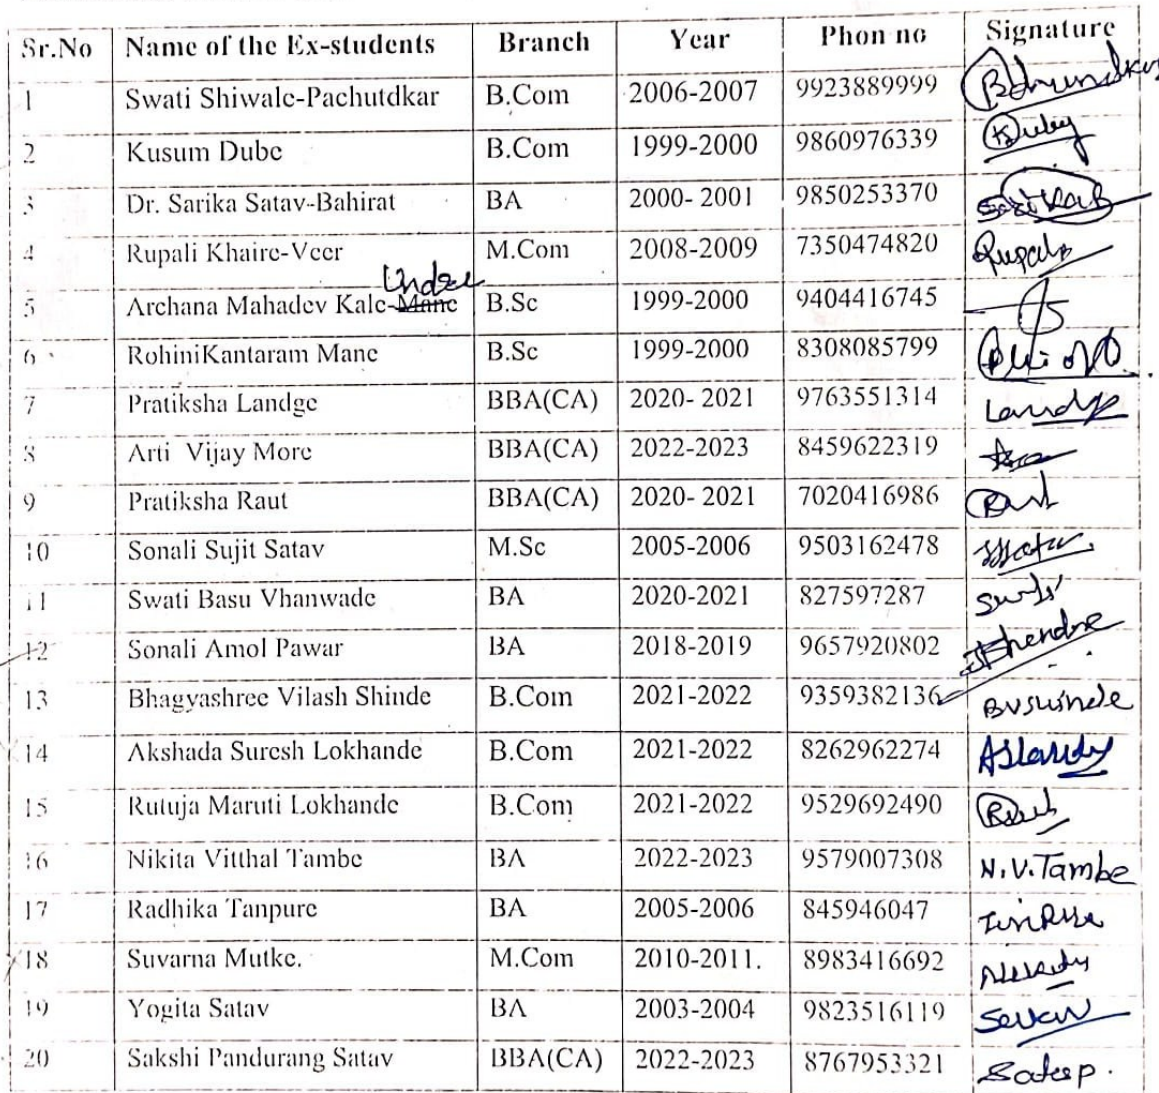 Sr.No Name of the Ex-students Branch Year Phon no Signature
1 Swati Shiwale-Pachutdkar B.Com 2006-2007 9923889999
2 Kusum Dube B.Com 1999-2000 9860976339
3 Dr. Sarika Satav-Bahirat BA 2000- 2001 9850253370
4 Rupali Khaire-Veer M.Com 2008-2009 7350474820
Undre
5 Archana Mahadev Kale-Mane B.Sc 1999-2000 9404416745
6 RohiniKantaram Mane B.Sc 1999-2000 8308085799
7 Pratiksha Landge BBA(CA) 2020- 2021 9763551314
8 Arti Vijay More BBA(CA) 2022-2023 8459622319
9 Pratiksha Raut BBA(CA) 2020- 2021 7020416986
10 Sonali Sujit Satav M.Sc 2005-2006 9503162478
11 Swati Basu Vhanwade BA 2020-2021 827597287
12 Sonali Amol Pawar BA 2018-2019 9657920802
13 Bhagyashree Vilash Shinde B.Com 2021-2022 9359382136
14 Akshada Suresh Lokhande B.Com 2021-2022 8262962274
15 Rutuja Maruti Lokhande B.Com 2021-2022 9529692490
16 Nikita Vitthal Tambe BA 2022-2023 9579007308 N.V.Tambe
17 Radhika Tanpure BA 2005-2006 845946047
18 Suvarna Mutke. M.Com 2010-2011. 8983416692
19 Yogita Satav BA 2003-2004 9823516119
20 Sakshi Pandurang Satav BBA(CA) 2022-2023 8767953321